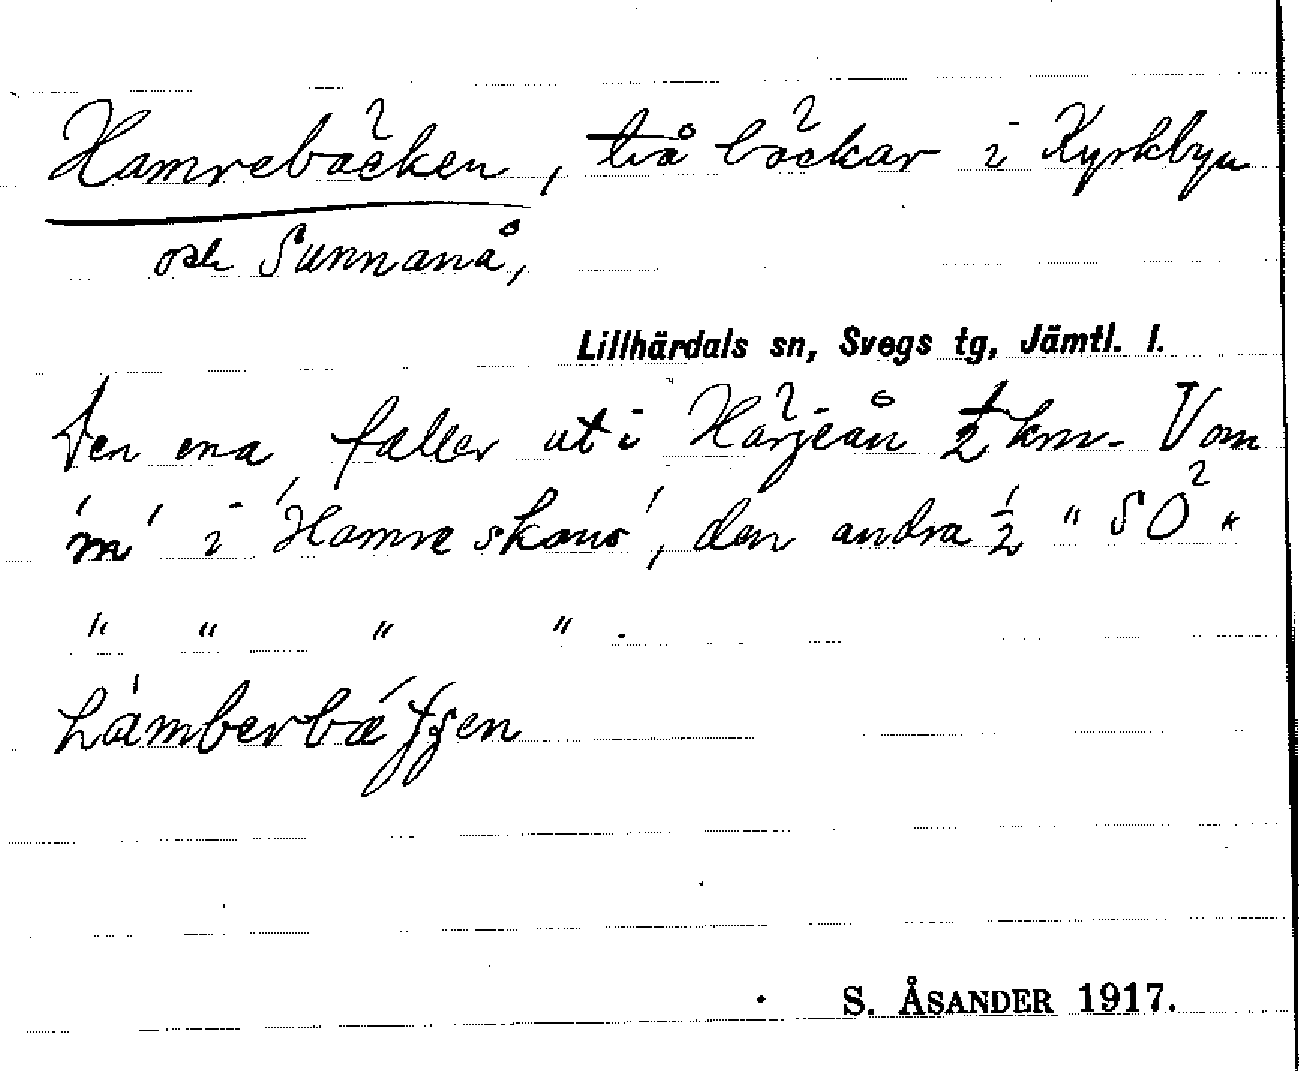 Hamrebäcken, två bäckar i Kyrkbyn
och Sunnanå,
Lillhärdals sn, Svegs tg, Jämtl. l.
Den ena faller ut i Härjeån ½ km. V om
'm' i 'Hamre skans', den andra ½ " SÖ "
" " " " .
S. ÅSANDER 1917.